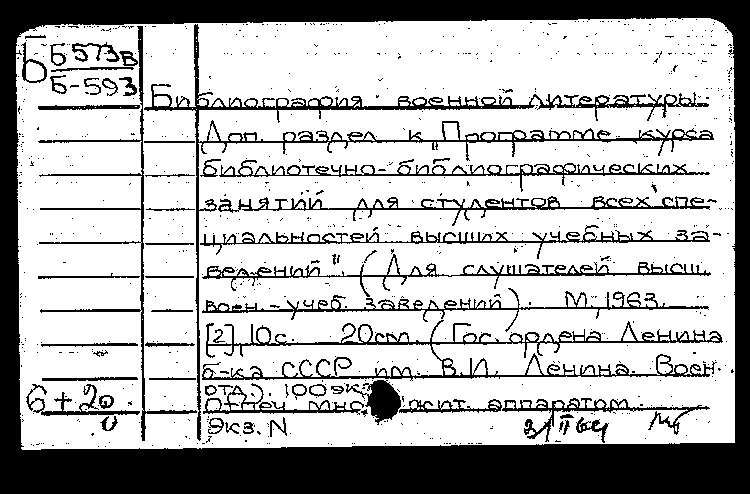 Б Б573в
Б-593
Библиография военной литературы.
Доп. раздел к „Программе курса
библиотечно-библиографических
занятий для студентов всех спе-
циальностей высших учебных за-
ведений". (Для слушателей высш.
воен.-учеб. заведений). М., 1963.
[2], 10 с. 20 см. (Гос. ордена Ленина
б-ка СССР им. В.И. Ленина. Воен.
отд.). 100 экз.
Отпеч. множит. аппаратом.
6+20
0
Экз. N